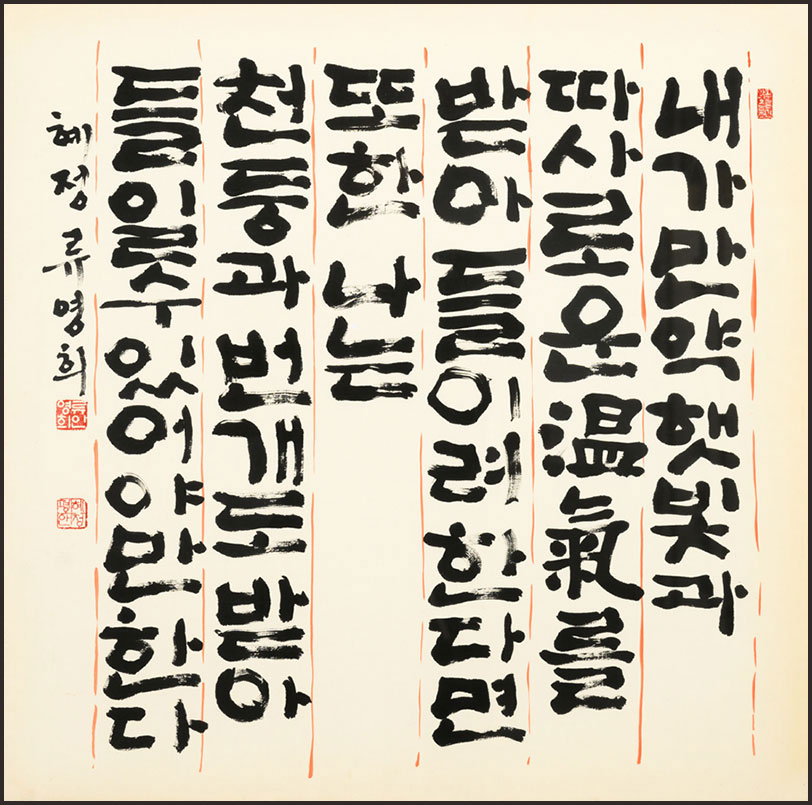 내가 만약 햇빛과
따사로운 温氣를
받아 들이려 한다면
또한 나는
천둥과 번개도 받아
들일 수 있어야만 한다
혜정 류영희